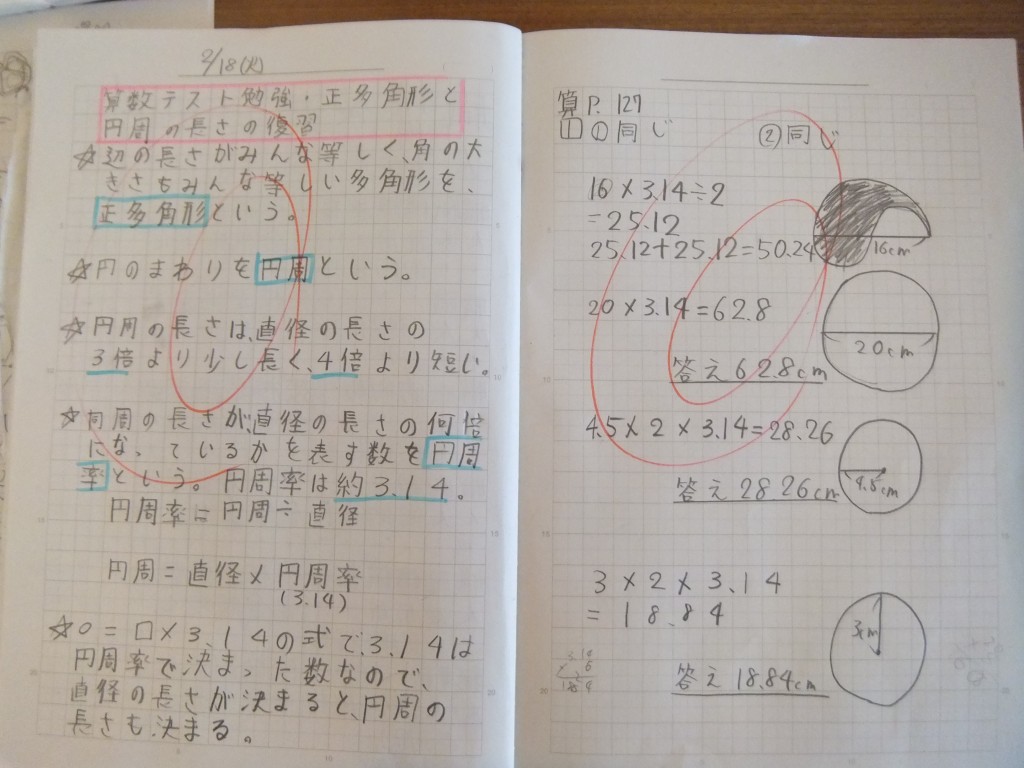 2/18(火)
算数テスト勉強・正多角形と
円周の長さの復習
☆辺の長さがみんな等しく、角の大
きさもみんな等しい多角形を、
正多角形という。
☆円のまわりを円周という。
☆円周の長さは、直径の長さの
3倍より少し長く、4倍より短い。
☆円周の長さが、直径の長さの何倍
になっているかを表す数を円周
率という。円周率は約3.14。
円周率=円周÷直径
円周=直径×円周率
(3.14)
☆○=□×3.14の式で、3.14は
円周率で決まった数なので、
直径の長さが決まると、円周の
長さも決まる。
算P.127
1 ①同じ ②同じ
16×3.14÷2
=25.12
25.12+25.12=50.24
16cm
20×3.14=62.8
20cm
答え62.8cm
4.5×2×3.14=28.26
4.5cm
答え28.26cm
3×2×3.14
=18.84
3m
答え18.84cm